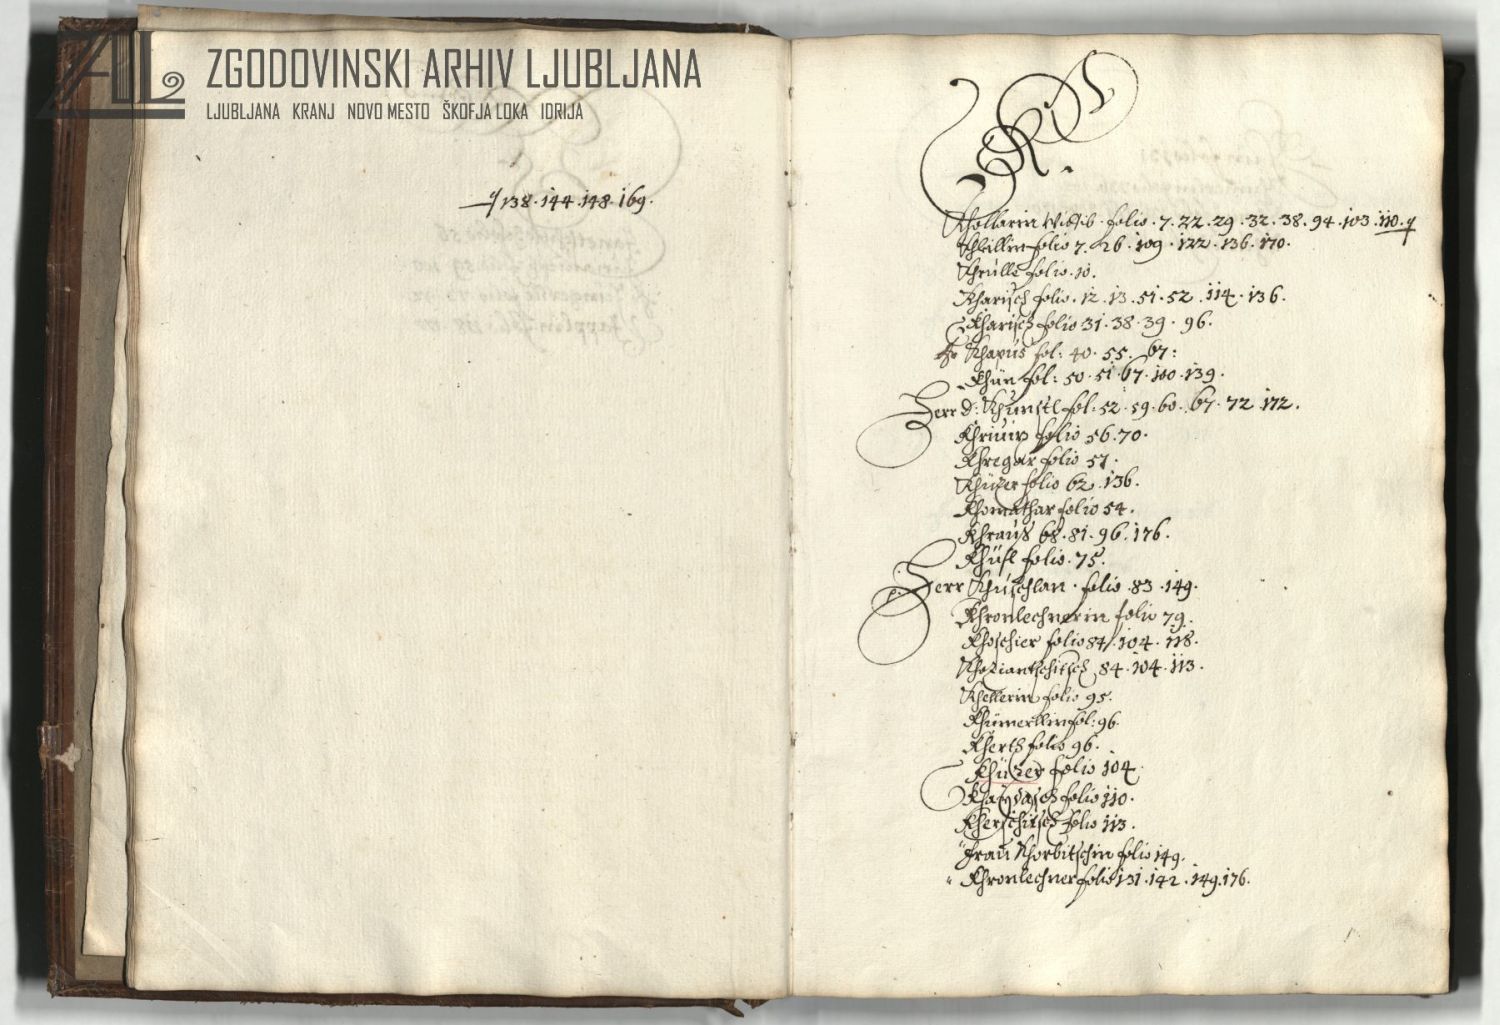 ZGODOVINSKI ARHIV LJUBLJANA
LJUBLJANA KRANJ NOVO MESTO ŠKOFJA LOKA IDRIJA
138 . 144 . 148 . 169 .
K
folio . 7 . 22 . 29 . 32 . 38 . 94 . 103 . 110 .
folio 7 . 26 . 109 . 122 . 136 . 170 .
Khrülle folio . 10 .
Kharisch folio . 12 . 13 . 51 . 52 . 114 . 136 .
Kharisch folio 31 . 38 . 39 . 96 .
Khapús fol : 40 . 55 . 67 :
Khün fol : 50 . 51 . 67 . 100 . 139 .
Herr d : Khunstl fol : 52 . 59 . 60 . 67 . 72 . 172 .
folio 56 . 70 .
Khregar folio 57 .
folio 62 . 136 .
Khomathar folio 54 .
Khrauß 68 . 81 . 96 . 176 .
Khüfl folio . 75 .
Herr Khuschlan . folio . 83 . 149 .
Khronlechnerin folio 79 .
Khoschier folio 84 . 104 . 118 .
84 . 104 . 113 .
Khellerin folio 95 .
Khümerllin fol : 96 .
folio 96 .
Khüzer folio 104
folio 110 .
Kherschitsch folio 113 .
Frau Khorbitschin folio 149 .
Khronlechner folio 131 . 142 . 149 . 176 .